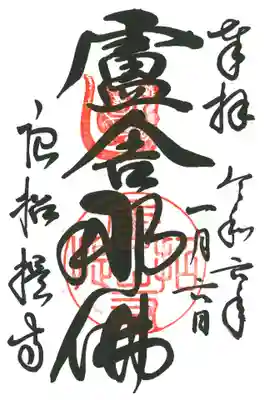 奉拝
令和六年
一月六日
盧舎那佛
唐招提寺